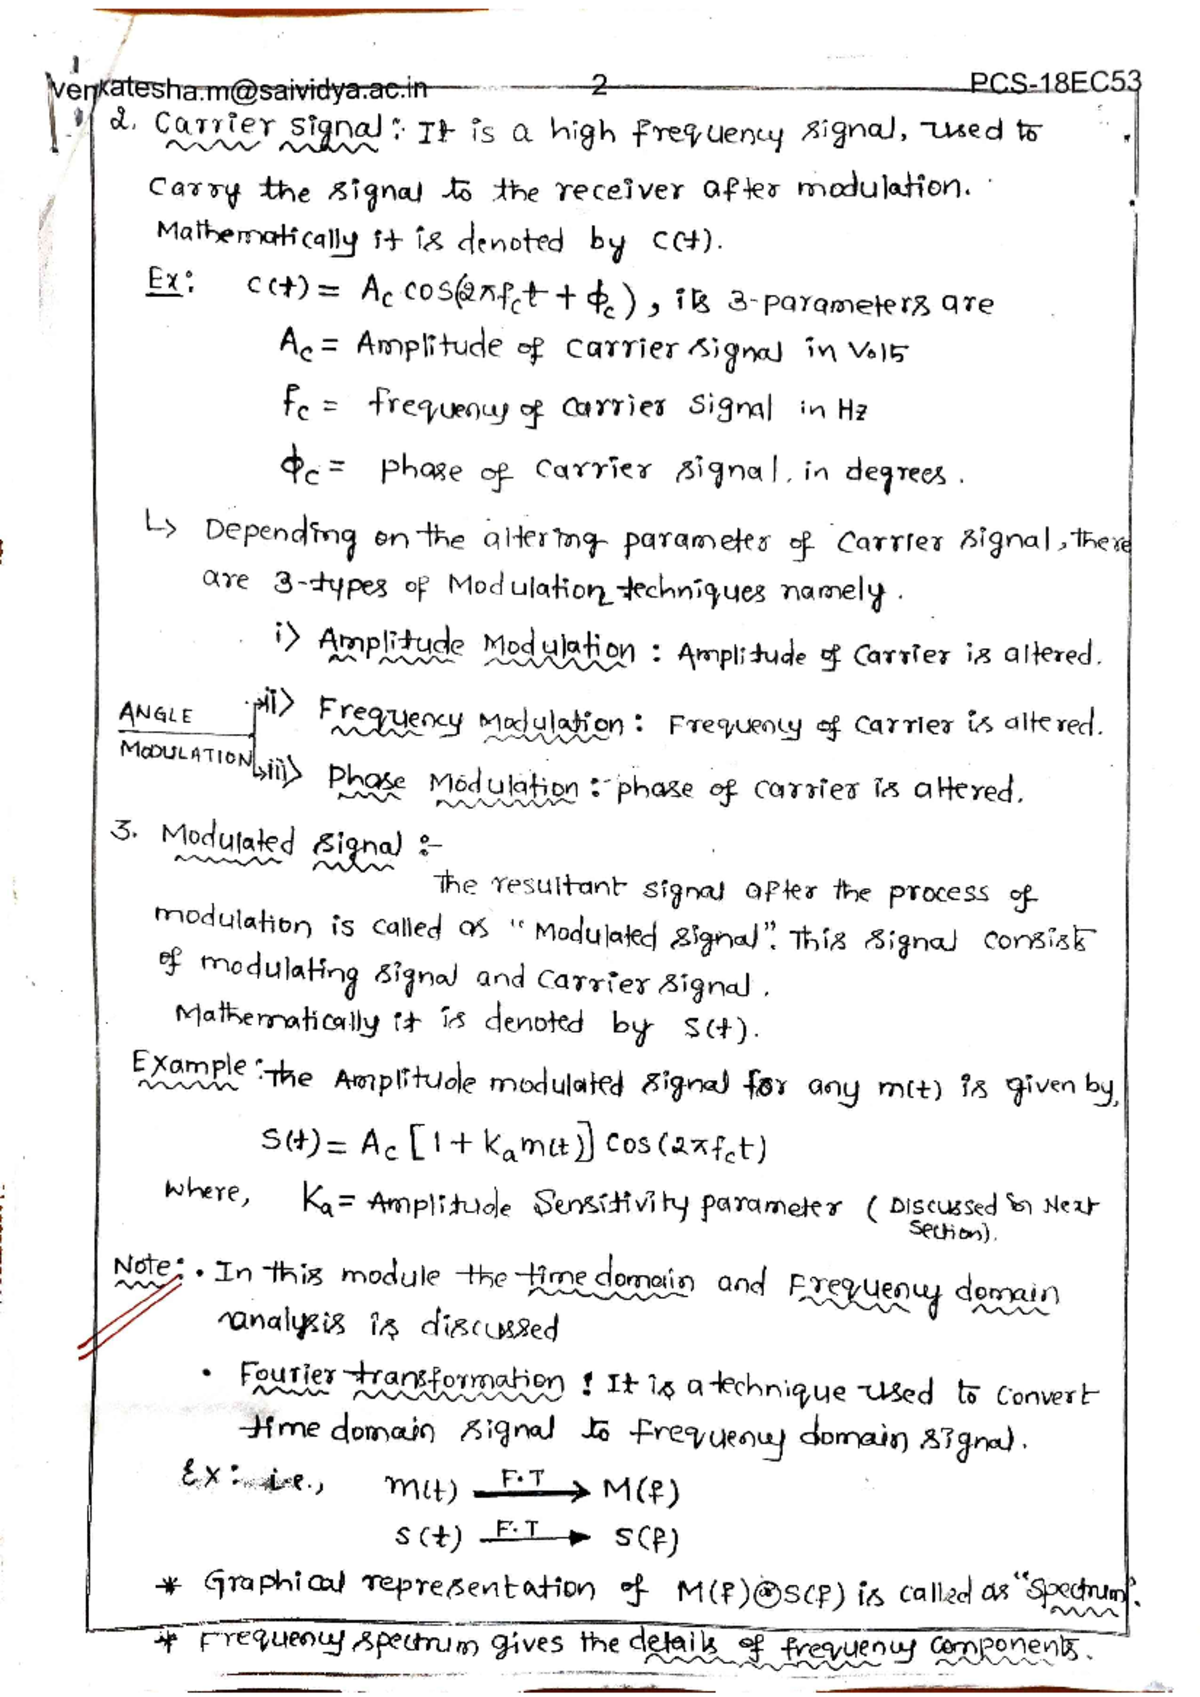 venkatesha.m@saividya.ac.in 2 PCS-18EC53
2. Carrier signal:- It is a high frequency signal, used to
carry the signal to the receiver after modulation.
Mathematically it is denoted by c(t).
Ex: c(t) = Ac cos(2πfct + ϕc), its 3-parameters are
Ac = Amplitude of carrier signal in Volts
fc = frequency of carrier signal in Hz
ϕc = phase of carrier signal, in degrees.
↳ Depending on the altering parameter of carrier signal, there
are 3-types of Modulation techniques namely.
i) Amplitude Modulation : Amplitude of carrier is altered.
ANGLE MODULATION
ii) Frequency Modulation : Frequency of carrier is altered.
iii) Phase Modulation :- phase of carrier is altered.
3. Modulated signal :-
The resultant signal after the process of
modulation is called as "Modulated signal". This signal consists
of modulating signal and carrier signal.
Mathematically it is denoted by s(t).
Example :- The Amplitude modulated signal for any m(t) is given by,
S(t) = Ac [1 + Ka m(t)] cos(2πfct)
Where, Ka = Amplitude Sensitivity parameter (Discussed in Next
Section).
Note: • In this module the time domain and Frequency domain
analysis is discussed
• Fourier transformation : It is a technique used to convert
time domain signal to frequency domain signal.
Ex: i.e., m(t) —F.T→ M(f)
s(t) —F.T→ S(f)
* Graphical representation of M(f) or S(f) is called as "Spectrum".
* Frequency spectrum gives the details of frequency components.